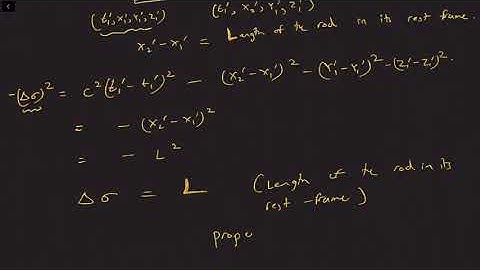 (t₁', x₁', Y₁', Z₁') (t₁', x₂', Y₁', Z₁')
x₂' - x₁' = Length of the rod in its rest frame.
-(Δσ)² = c²(t₁' - t₁')² - (x₂' - x₁')² - (Y₁' - Y₁')² - (Z₁' - Z₁')².
= - (x₂' - x₁')²
= - L²
Δσ = L (Length of the rod in its
rest-frame)
prope